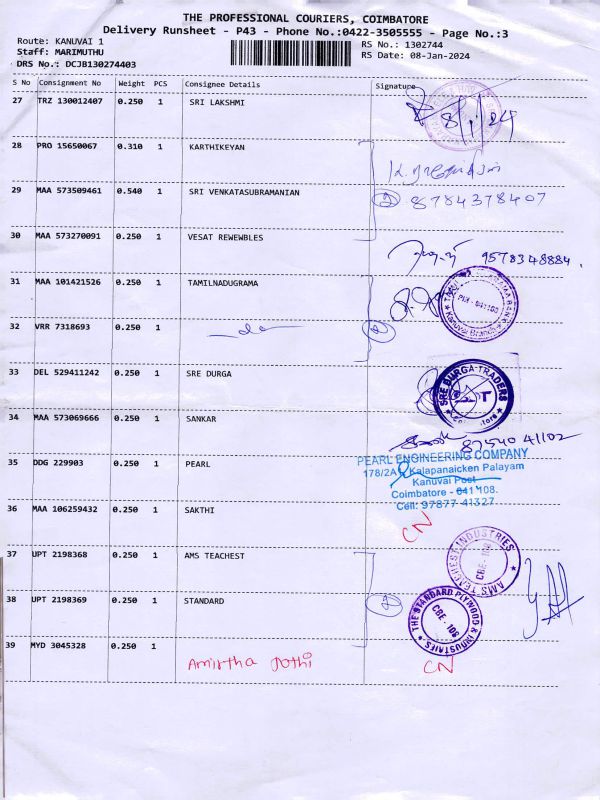 THE PROFESSIONAL COURIERS, COIMBATORE
Delivery Runsheet - P43 - Phone No.:0422-3505555 - Page No.:3
Route: KANUVAI 1
Staff: MARIMUTHU
DRS No.: DCJB130274403
RS No.: 1302744
RS Date: 08-Jan-2024
S No Consignment No Weight PCS Consignee Details Signature
27 TRZ 130012407 0.250 1 SRI LAKSHMI
8/1/24
28 PRO 15650067 0.310 1 KARTHIKEYAN
29 MAA 573509461 0.540 1 SRI VENKATASUBRAMANIAN
2 8784378407
30 MAA 573270091 0.250 1 VESAT REWEWBLES
9578348884.
31 MAA 101421526 0.250 1 TAMILNADUGRAMA
PIN - 641108
Kanuvai Branch
32 VRR 7318693 0.250 1 do
33 DEL 529411242 0.250 1 SRE DURGA
SRE DURGA TRADERS
34 MAA 573069666 0.250 1 SANKAR
87540 41102
35 DDG 229903 0.250 1 PEARL
PEARL ENGINEERING COMPANY
178/2A, Kalapanaicken Palayam
Kanuvai Post
Coimbatore - 641 108.
Cell: 97877 41327
36 MAA 106259432 0.250 1 SAKTHI
CN
37 UPT 2198368 0.250 1 AMS TEACHEST
AMS TEACHEST INDUSTRIES
CBE - 108
38 UPT 2198369 0.250 1 STANDARD
2
THE STANDARD PLYWOOD & INDUSTRIES
CBE - 108
39 MYD 3045328 0.250 1
Amirtha Jothi
CN